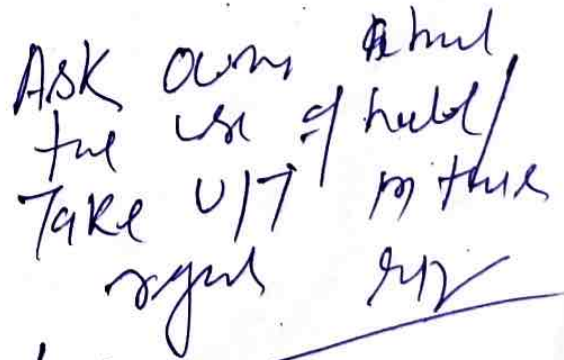 Ask owner about
the use of
Take U/T in this
regard